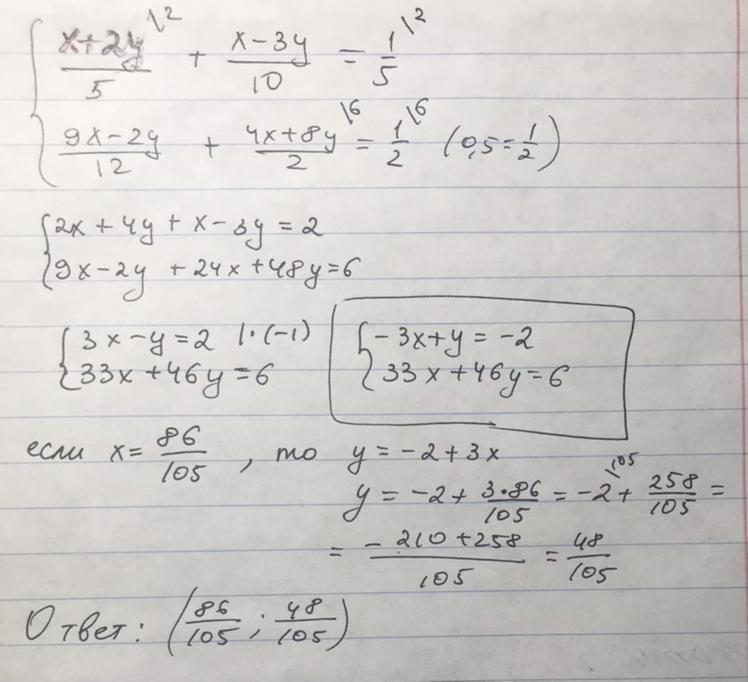 { (x+2y)/5 \2 + (x-3y)/10 = 1/5 \2
{ (9x-2y)/12 + (4x+8y)/2 \6 = 1/2 \6 (0,5=1/2)
{ 2x+4y+x-3y=2
{ 9x-2y+24x+48y=6
{ 3x-y=2 |·(-1) { -3x+y=-2
{ 33x+46y=6 { 33x+46y=6
если x=86/105, то y=-2+3x
y=-2+(3·86)/105=-2 \105+258/105=
=(-210+258)/105=48/105
Ответ: (86/105; 48/105)